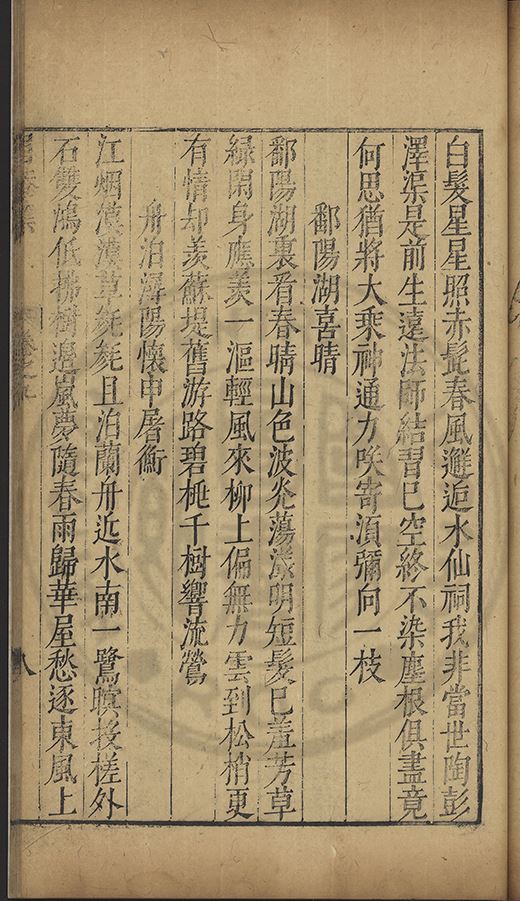 白髮星星照赤髭春風邂逅水仙祠我非當世陶彭
澤渠是前生遠法師結習已空終不染塵根俱盡竟
何思猶將大乘神通力咲寄須彌向一枝
鄱陽湖喜晴
鄱陽湖裏看春晴山色波光蕩漾明短髮已羞芳草
緑閑身應羨一漚輕風來柳上偏無力雲到松梢更
有情却羡蘇堤舊游路碧桃千樹響流鶯
舟泊潯陽懷申屠衡
江烟漠漠草毵毵且泊蘭舟近水南一鷺暝投槎外
石雙鴻低拂樹邊嵐夢隨春雨歸華屋愁逐東風上
八